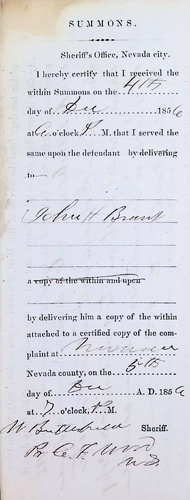 SUMMONS.
Sheriff's Office, Nevada city.
I hereby certify that I received the
within Summons on the 4th
day of Dec 1856
at o'clock P.M. that I served the
same upon the defendant by delivering
to
John H Brant
a copy of the within and upon
by delivering him a copy of the within
attached to a certified copy of the com-
plaint at
Nevada county, on the 5th
day of Dec A. D. 1856
at 7 o'clock, P.M.
W Butterfield Sheriff.
By